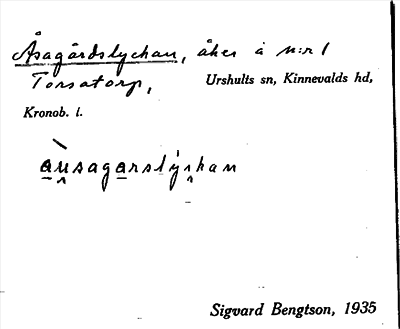 Åsagårdslyckan, åker å n:r 1
Torsatorp, Urshults sn, Kinnevalds hd,
Kronob. l.
au̯sagarslýckan
Sigvard Bengtson, 1935